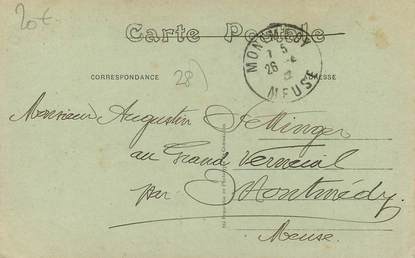 20€
Carte Postale
CORRESPONDANCE
28)
ADRESSE
MONTMEDY
26
MEUSE
Monsieur Augustin Fettinger
au Grand Verneuil
par Montmédy.
Meuse.